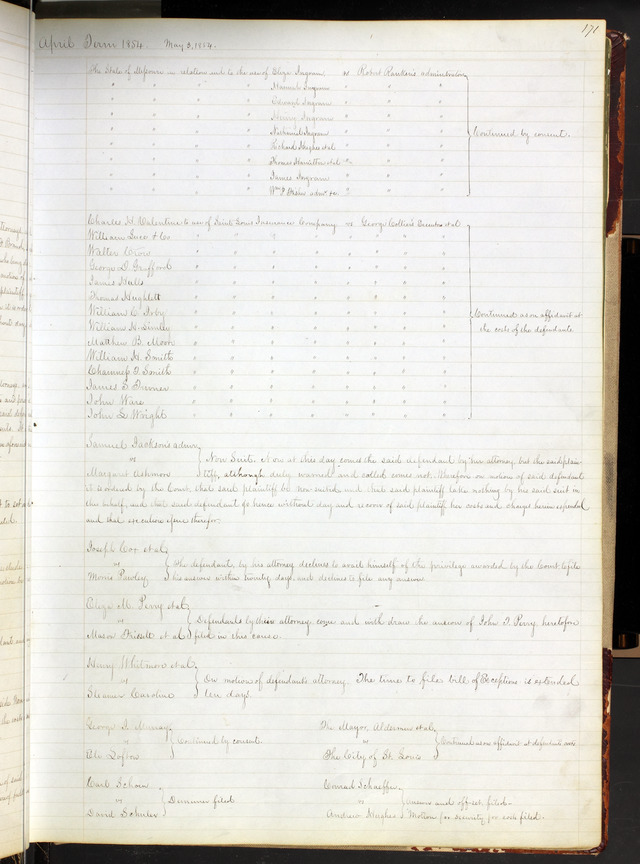 171
April Term 1854. May 3, 1854.
The State of Missouri in relation and to the use of Eliza Ingram vs Robert Rankin's administrator
" " " " " Manuel Ingram " " "
" " " " " Edward Ingram " " "
" " " " " Henry Ingram " " "
" " " " " Nathaniel Ingram " " " Continued by consent.
" " " " " Richard Hughes et al " " "
" " " " " Thomas Hamilton et al " " "
" " " " " James Ingram " " "
" " " " " Wm admr. &c " "
Charles H. Valentine to use of Saint Louis Insurance Company vs George Collier's Executors et al
William Luce & Co " " " " " " " " "
Walter Crow " " " " " " " " "
George D. " " " " " " " " "
James Hulls " " " " " " " " "
Thomas Hughlett " " " " " " " " "
William C. " " " " " " " " " Continued as on affidavit at
William H. " " " " " " " " " the costs of the defendants.
Matthew B. Moore " " " " " " " " "
William H. Smith " " " " " " " " "
Chauncey F. Smith " " " " " " " " "
James E. Turner " " " " " " " " "
John Ware " " " " " " " " "
John L. Wright " " " " " " " " "
Samuel Jackson's admr
vs Non Suit. Now at this day comes the said defendant by her attorney, but the said plain-
Margaret Ashmon tiff, although duly warned and called comes not. Therefore on motion of said defendant
it is ordered by the Court, that said plaintiff be non suited, and that said plaintiff take nothing by his said suit in
this behalf, and that said defendant go hence without day and recover of said plaintiff her costs and charges herein expended
and that execution issue therefor.
Joseph Cox et al
vs The defendant, by his attorney declines to avail himself of the privilege awarded by the Court to file
Morris Pawley his answer within twenty days, and declines to file any answer.
Eliza M. Perry et al
vs Defendants by their attorney come and with draw the answer of John T. Perry, heretofore
Mason Frissell et al filed in this cause.
Henry Whitmore et al
vs On motion of defendants attorney. The time to file bill of Exceptions is extended
Steamer Caroline ten days.
George F. Murray
vs Continued by consent.
Peter
The Mayor, Aldermen et al
vs Continued as on affidavit at defendants costs
The City of St. Louis
Carl Schoen
vs Demurrer filed.
David Schuler
Conrad Schaeffer
vs Answer and off-set, filed.-
Andrew Hughes Motion for security for costs filed.